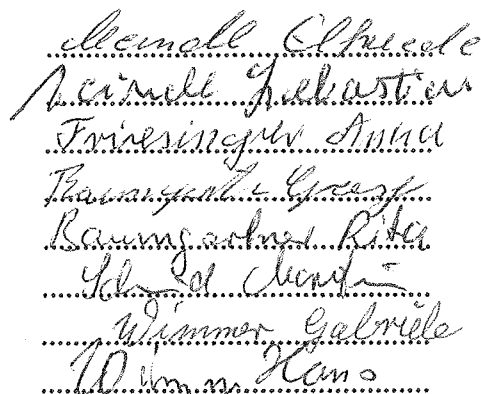 Meindl Elfriede
Meindl Sebastian
Friesinger Anna
Baumgartner Georg
Baumgartner Rita
Schmid Martin
Wimmer Gabriele
Wimmer Hans